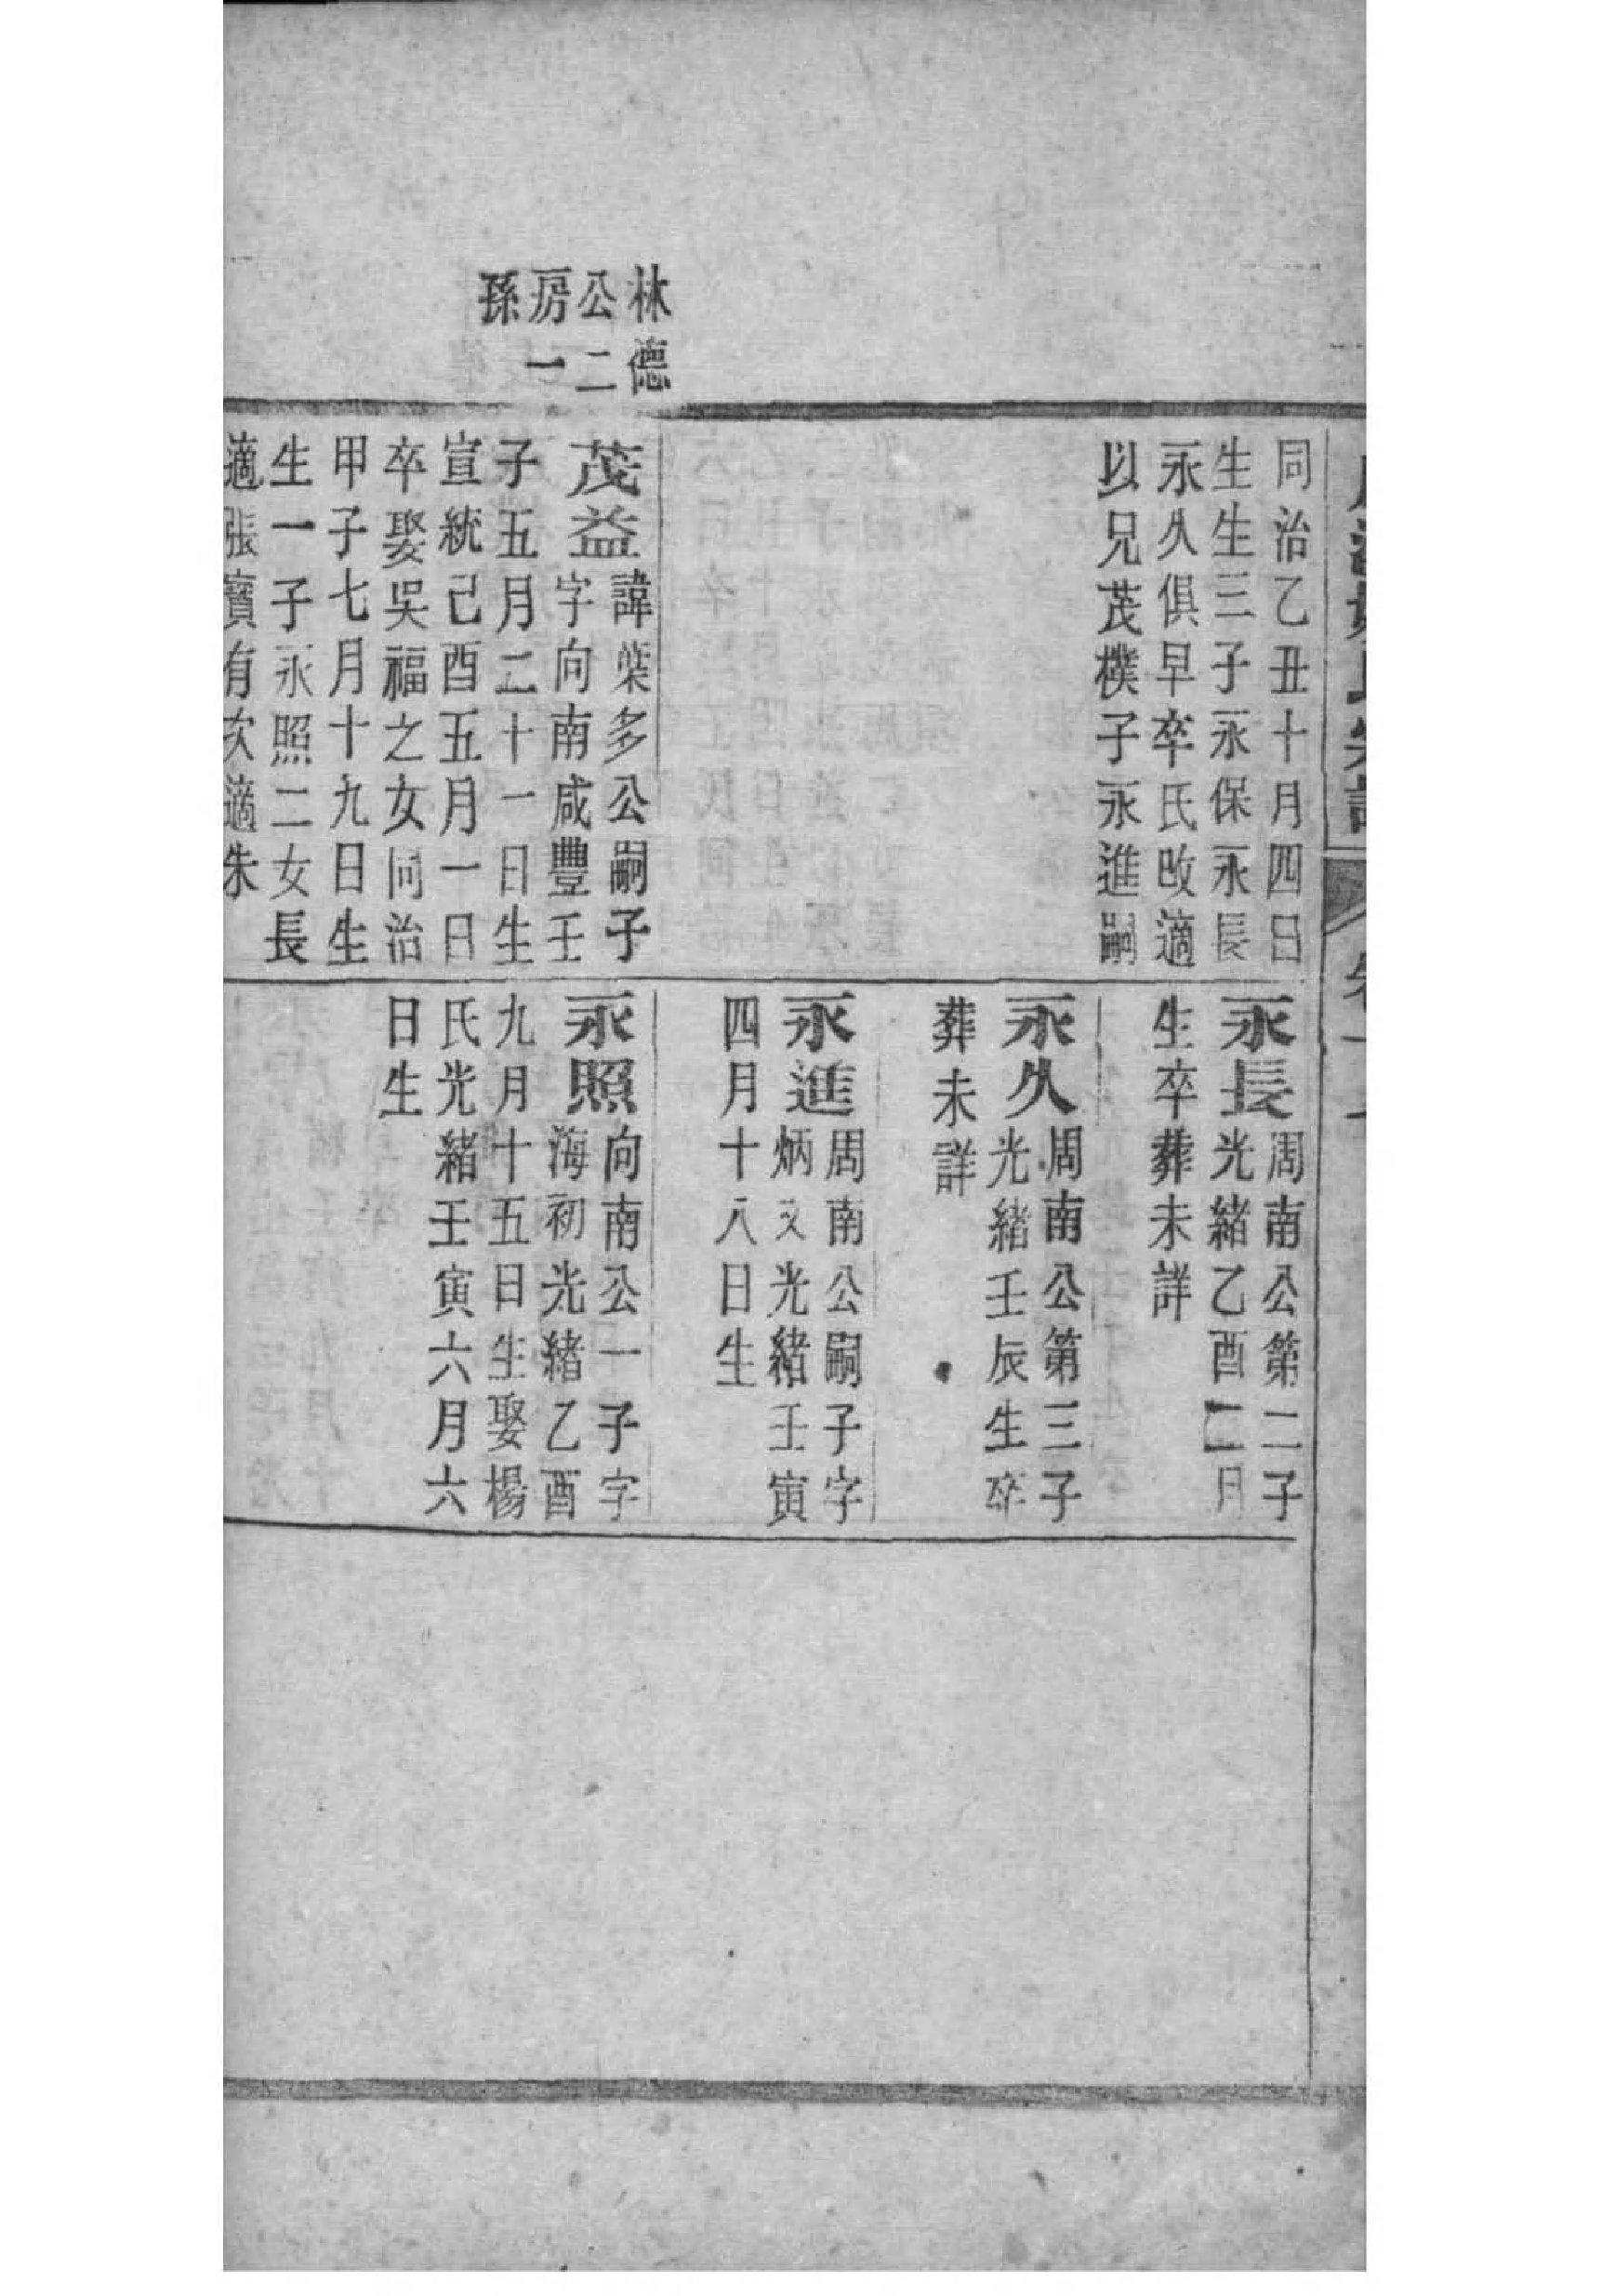 林德
公二
房一
孫
同治乙丑十月四日
生生三子永保永長
永久俱早卒氏改適
以兄茂樸子永進嗣
茂益
諱葉多公嗣子
字向南咸豐壬
子五月二十一日生
宣統己酉五月一日
卒娶吳福之女同治
甲子七月十九日生
生一子永照二女長
適張寶有次適朱
永長
周南公第二子
光緒乙酉二月
生卒葬未詳
永久
周南公第三子
光緒壬辰生卒
葬未詳
永進
周南公嗣子字
炳文光緒壬寅
四月十八日生
永照
向南公一子字
海初光緒乙酉
九月十五日生娶楊
氏光緒壬寅六月六
日生